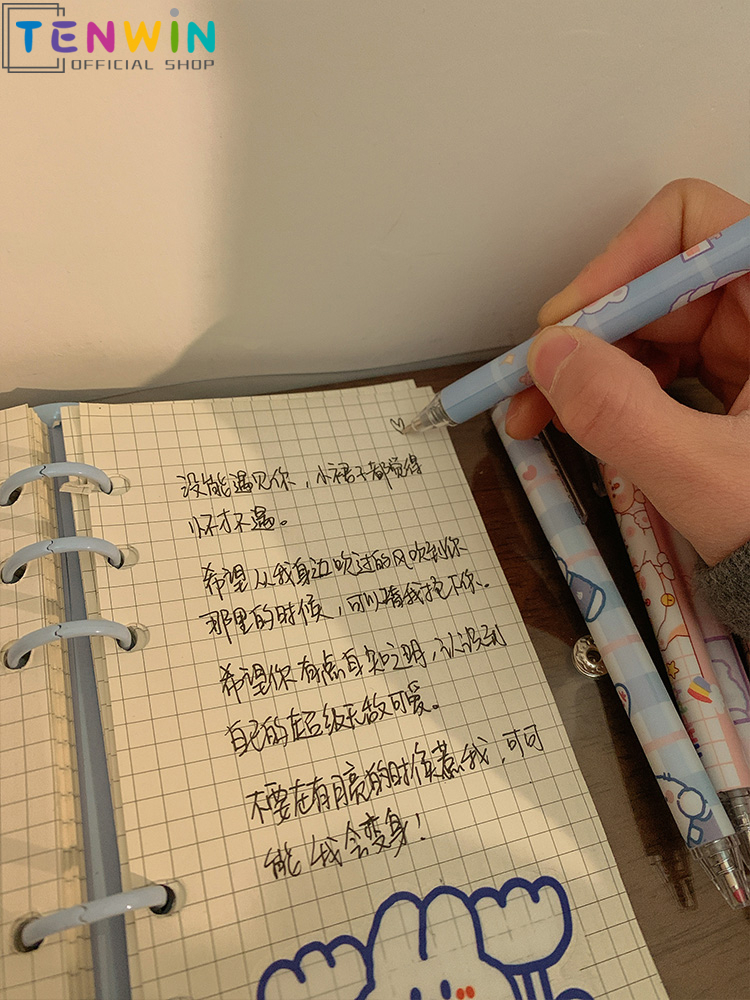 TENWIN
OFFICIAL SHOP
没能遇见你，小裙子都觉得
怀才不遇。
希望从我身边吹过的风吹到你
那里的时候，可以替我抱下你。
希望你有点自知之明，认识到
自己的超级无敌可爱。
不要在有月亮的时候惹我，可可
能我会变身！